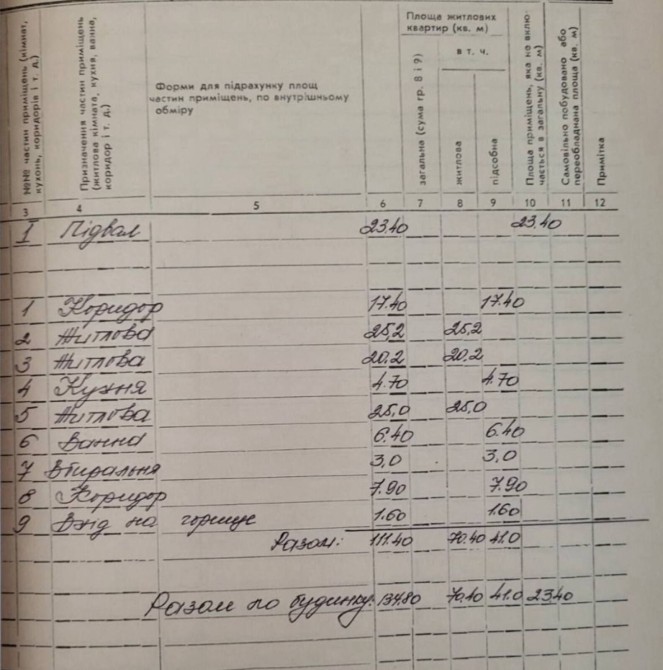 №№ частин приміщень (кімнат, кухонь, коридорів і т. д.)
Призначення частин приміщень (житлова кімната, кухня, ванна, коридор і т. д.)
Форми для підрахунку площ частин приміщень, по внутрішньому обміру
Площа житлових квартир (кв. м)
загальна (сума гр. 8 і 9)
в т. ч.
житлова
підсобна
Площа приміщень, яка не включається в загальну (кв. м)
Самовільно побудовано або переобладнана площа (кв. м)
Примітка
3 4 5 6 7 8 9 10 11 12
I Підвал 23.40 23.40
1 Коридор 17.40 17.40
2 Житлова 25,2 25,2
3 Житлова 20.2 20.2
4 Кухня 4.70 4.70
5 Житлова 25,0 25,0
6 Ванна 6.40 6.40
7 Вбиральня 3,0 3,0
8 Коридор 7.90 7.90
9 Вхід на горище 1.60 1.60
Разом: 111.40 70.40 41.0
Разом по будинку: 134.80 70.40 41.0 23.40